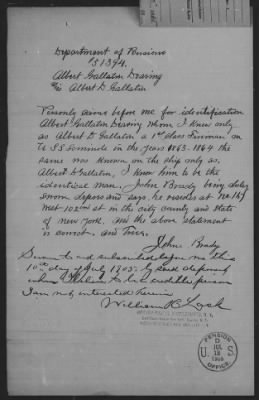 Department of Pensions
51394.
Albert Gallatin Dearing
Albert D Gallatin
Personly came before me for identification
Albert Gallatin Dearing whom I knew only
as Albert D Gallatin a 1st class Fireman on
U S S Seminole in the years 1863-1864 the
same was known on the ship only as
Albert D Gallatin, I know him to be the
identical man. John Brady being duly
sworn deposes and says, he resides at No 167
West 102nd st in the city county and state
of new York. And the above statement
is correct and True.
John Brady
Sworn to and subscribed before me this
10th day of July 1905. by said deponent
whom I believe to be a credible person
I am not interested herein
William H. Lock
PENSION
D
JUL
U S
OFFICE